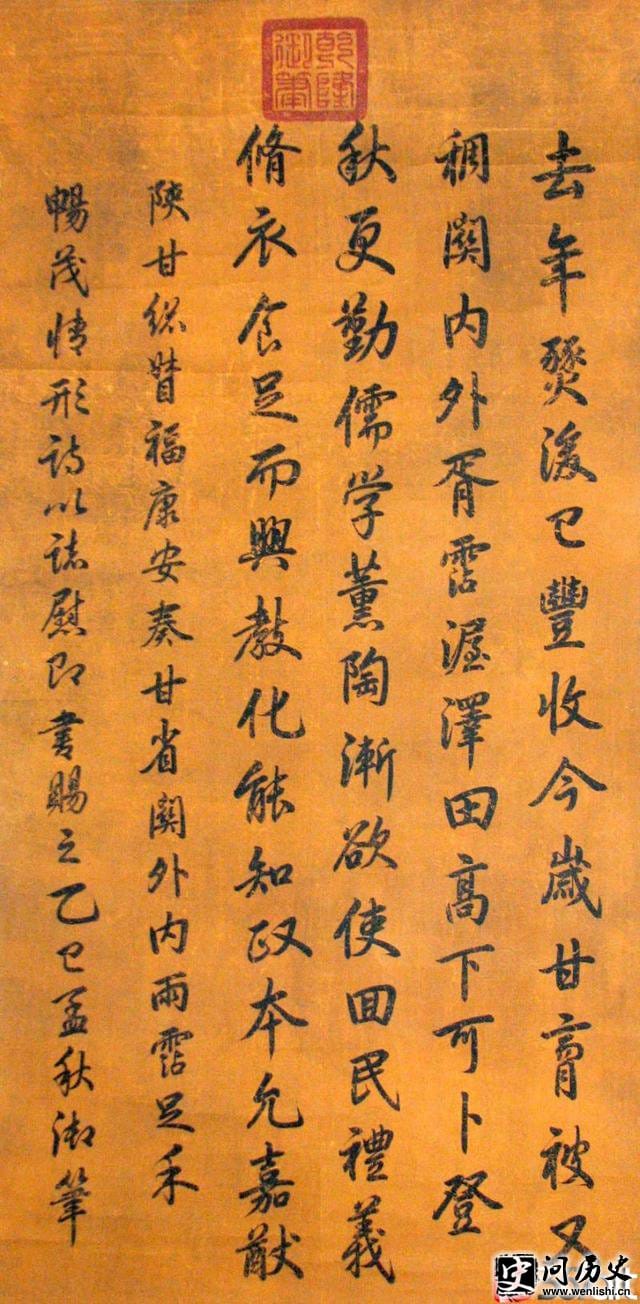 乾隆御筆
去年燹後已豐收今歲甘膏被又
稠關內外胥霑渥澤田高下可卜登
秋更勤儒学薰陶漸欲使囬民禮義
脩衣食足而興教化能知政本允嘉猷
陝甘緫督福康安奏甘省關外內雨霑足禾
暢茂情形詩以誌慰即書賜之乙巳孟秋御筆
问历史
www.wenlishi.cn